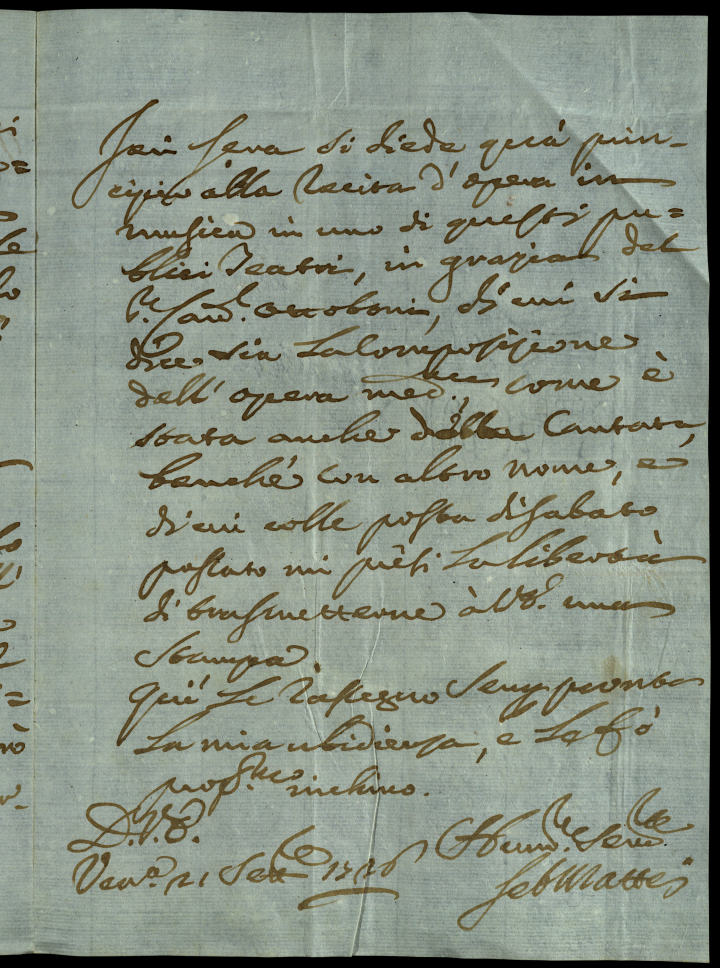 Jeri sera si diede quà prin-
cipio alla recita d'opera in
musica in uno di questi pu=
blici Teatri, in grazia del
Sr. Card.l Ottoboni, di cui si
dice sia La Composizione
dell'opera med.ma, come è
stata anche della Cantata,
benche con altro nome, e
di cui colle posta di Sabato
passato mi presi La libertà
di trasmetterne à V.E. una
stampa.
Qui Le rassegno sempre pronta
La mia ubidienza, e Le fò
prof.mo inchino.
D. V.E.
Ven.a 21 Sett.e 1726
Hum.e Ser.re
Seb Mattei